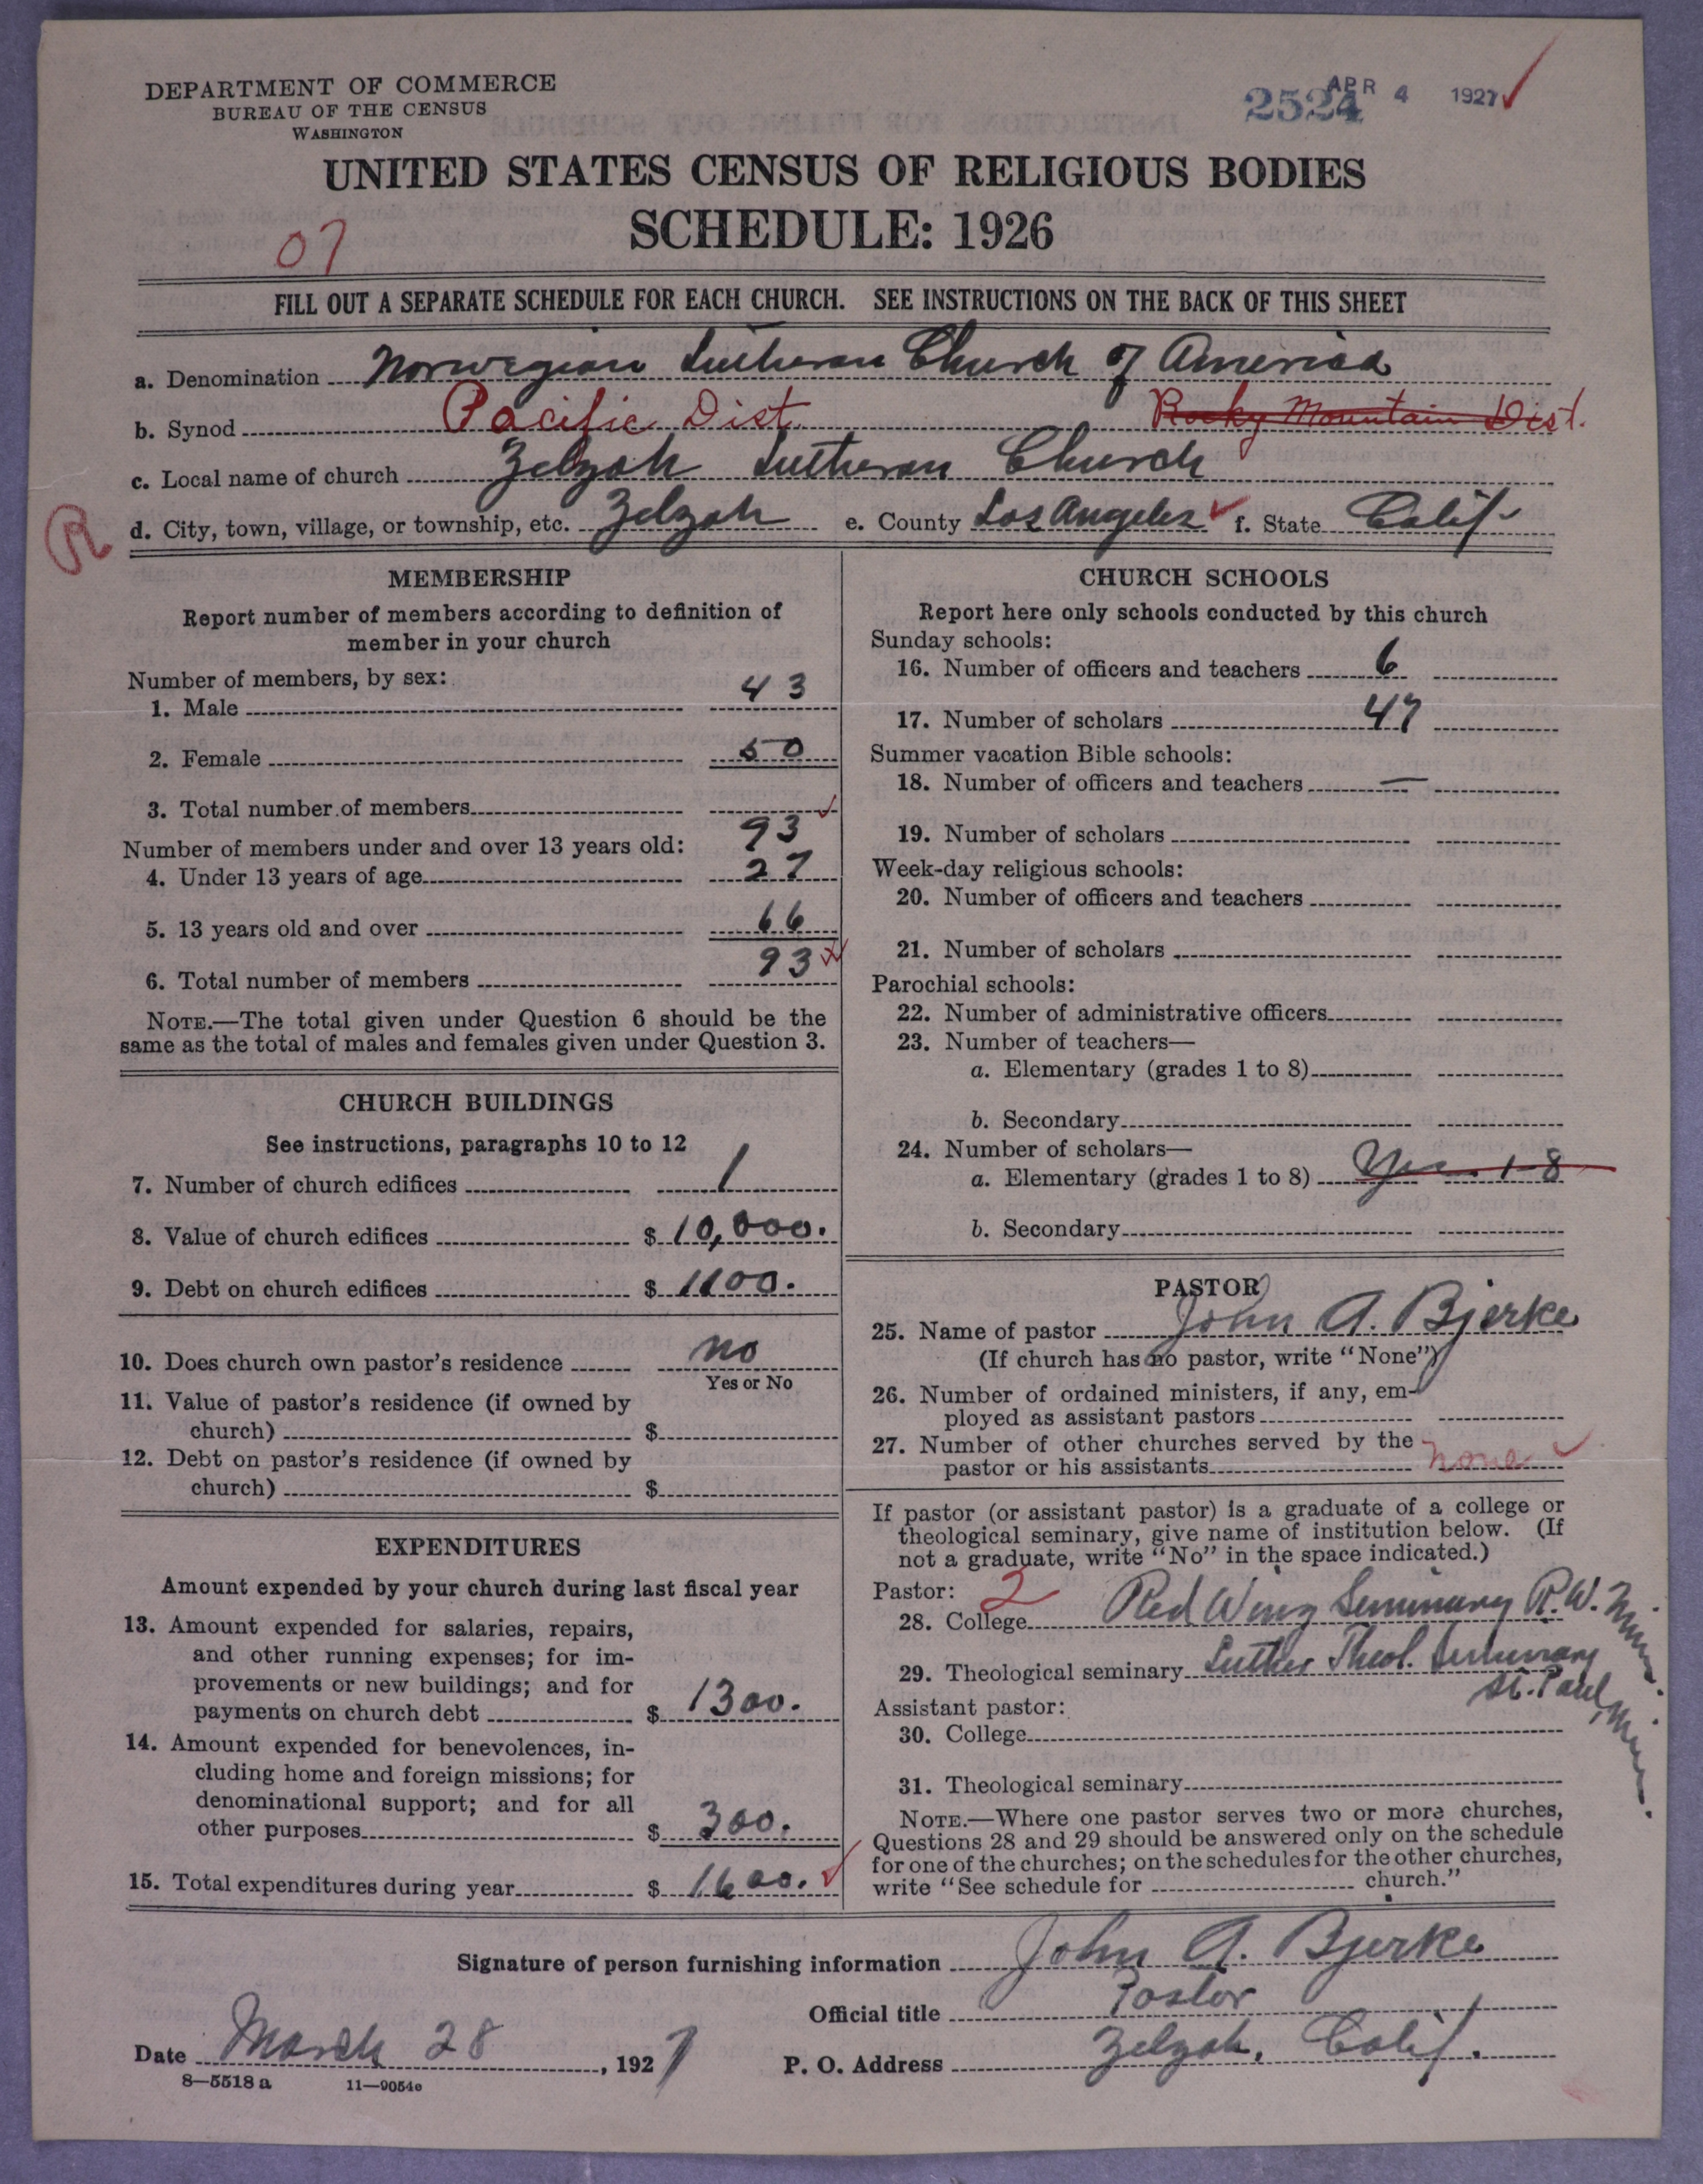 DEPARTMENT OF COMMERCE
BUREAU OF THE CENSUS
WASHINGTON
2524 APR 4 1927
UNITED STATES CENSUS OF RELIGIOUS BODIES
SCHEDULE: 1926
07
FILL OUT A SEPARATE SCHEDULE FOR EACH CHURCH. SEE INSTRUCTIONS ON THE BACK OF THIS SHEET
a. Denomination Norwegian Lutheran Church of America
b. Synod Pacific Dist. Rocky Mountain Dist.
c. Local name of church Zelzah Lutheran Church
R
d. City, town, village, or township, etc. Zelzah e. County Los Angeles f. State Calif.
MEMBERSHIP
Report number of members according to definition of
member in your church
Number of members, by sex:
1. Male 43
2. Female 50
3. Total number of members 93
Number of members under and over 13 years old:
4. Under 13 years of age 27
5. 13 years old and over 66
6. Total number of members 93
NOTE.—The total given under Question 6 should be the
same as the total of males and females given under Question 3.
CHURCH BUILDINGS
See instructions, paragraphs 10 to 12
7. Number of church edifices 1
8. Value of church edifices $ 10,000.
9. Debt on church edifices $ 1100.
10. Does church own pastor's residence no
Yes or No
11. Value of pastor's residence (if owned by
church) $
12. Debt on pastor's residence (if owned by
church) $
EXPENDITURES
Amount expended by your church during last fiscal year
13. Amount expended for salaries, repairs,
and other running expenses; for im-
provements or new buildings; and for
payments on church debt $ 1300.
14. Amount expended for benevolences, in-
cluding home and foreign missions; for
denominational support; and for all
other purposes $ 300.
15. Total expenditures during year $ 1600.
CHURCH SCHOOLS
Report here only schools conducted by this church
Sunday schools:
16. Number of officers and teachers 6
17. Number of scholars 47
Summer vacation Bible schools:
18. Number of officers and teachers —
19. Number of scholars
Week-day religious schools:
20. Number of officers and teachers
21. Number of scholars
Parochial schools:
22. Number of administrative officers
23. Number of teachers—
a. Elementary (grades 1 to 8)
b. Secondary
24. Number of scholars—
a. Elementary (grades 1 to 8) 1-8
b. Secondary
PASTOR
25. Name of pastor John A. Bjerke
(If church has no pastor, write "None")
26. Number of ordained ministers, if any, em-
ployed as assistant pastors
27. Number of other churches served by the
pastor or his assistants none
If pastor (or assistant pastor) is a graduate of a college or
theological seminary, give name of institution below. (If
not a graduate, write "No" in the space indicated.)
Pastor: 2
28. College Red Wing Seminary R.W. Minn.
29. Theological seminary Luther Theol. Seminary
St. Paul, Minn.
Assistant pastor:
30. College
31. Theological seminary
NOTE.—Where one pastor serves two or more churches,
Questions 28 and 29 should be answered only on the schedule
for one of the churches; on the schedules for the other churches,
write "See schedule for church."
Signature of person furnishing information John A. Bjerke
Official title Pastor
Date March 28, 1927 P. O. Address Zelzah, Calif.
8—5518 a 11—9054e